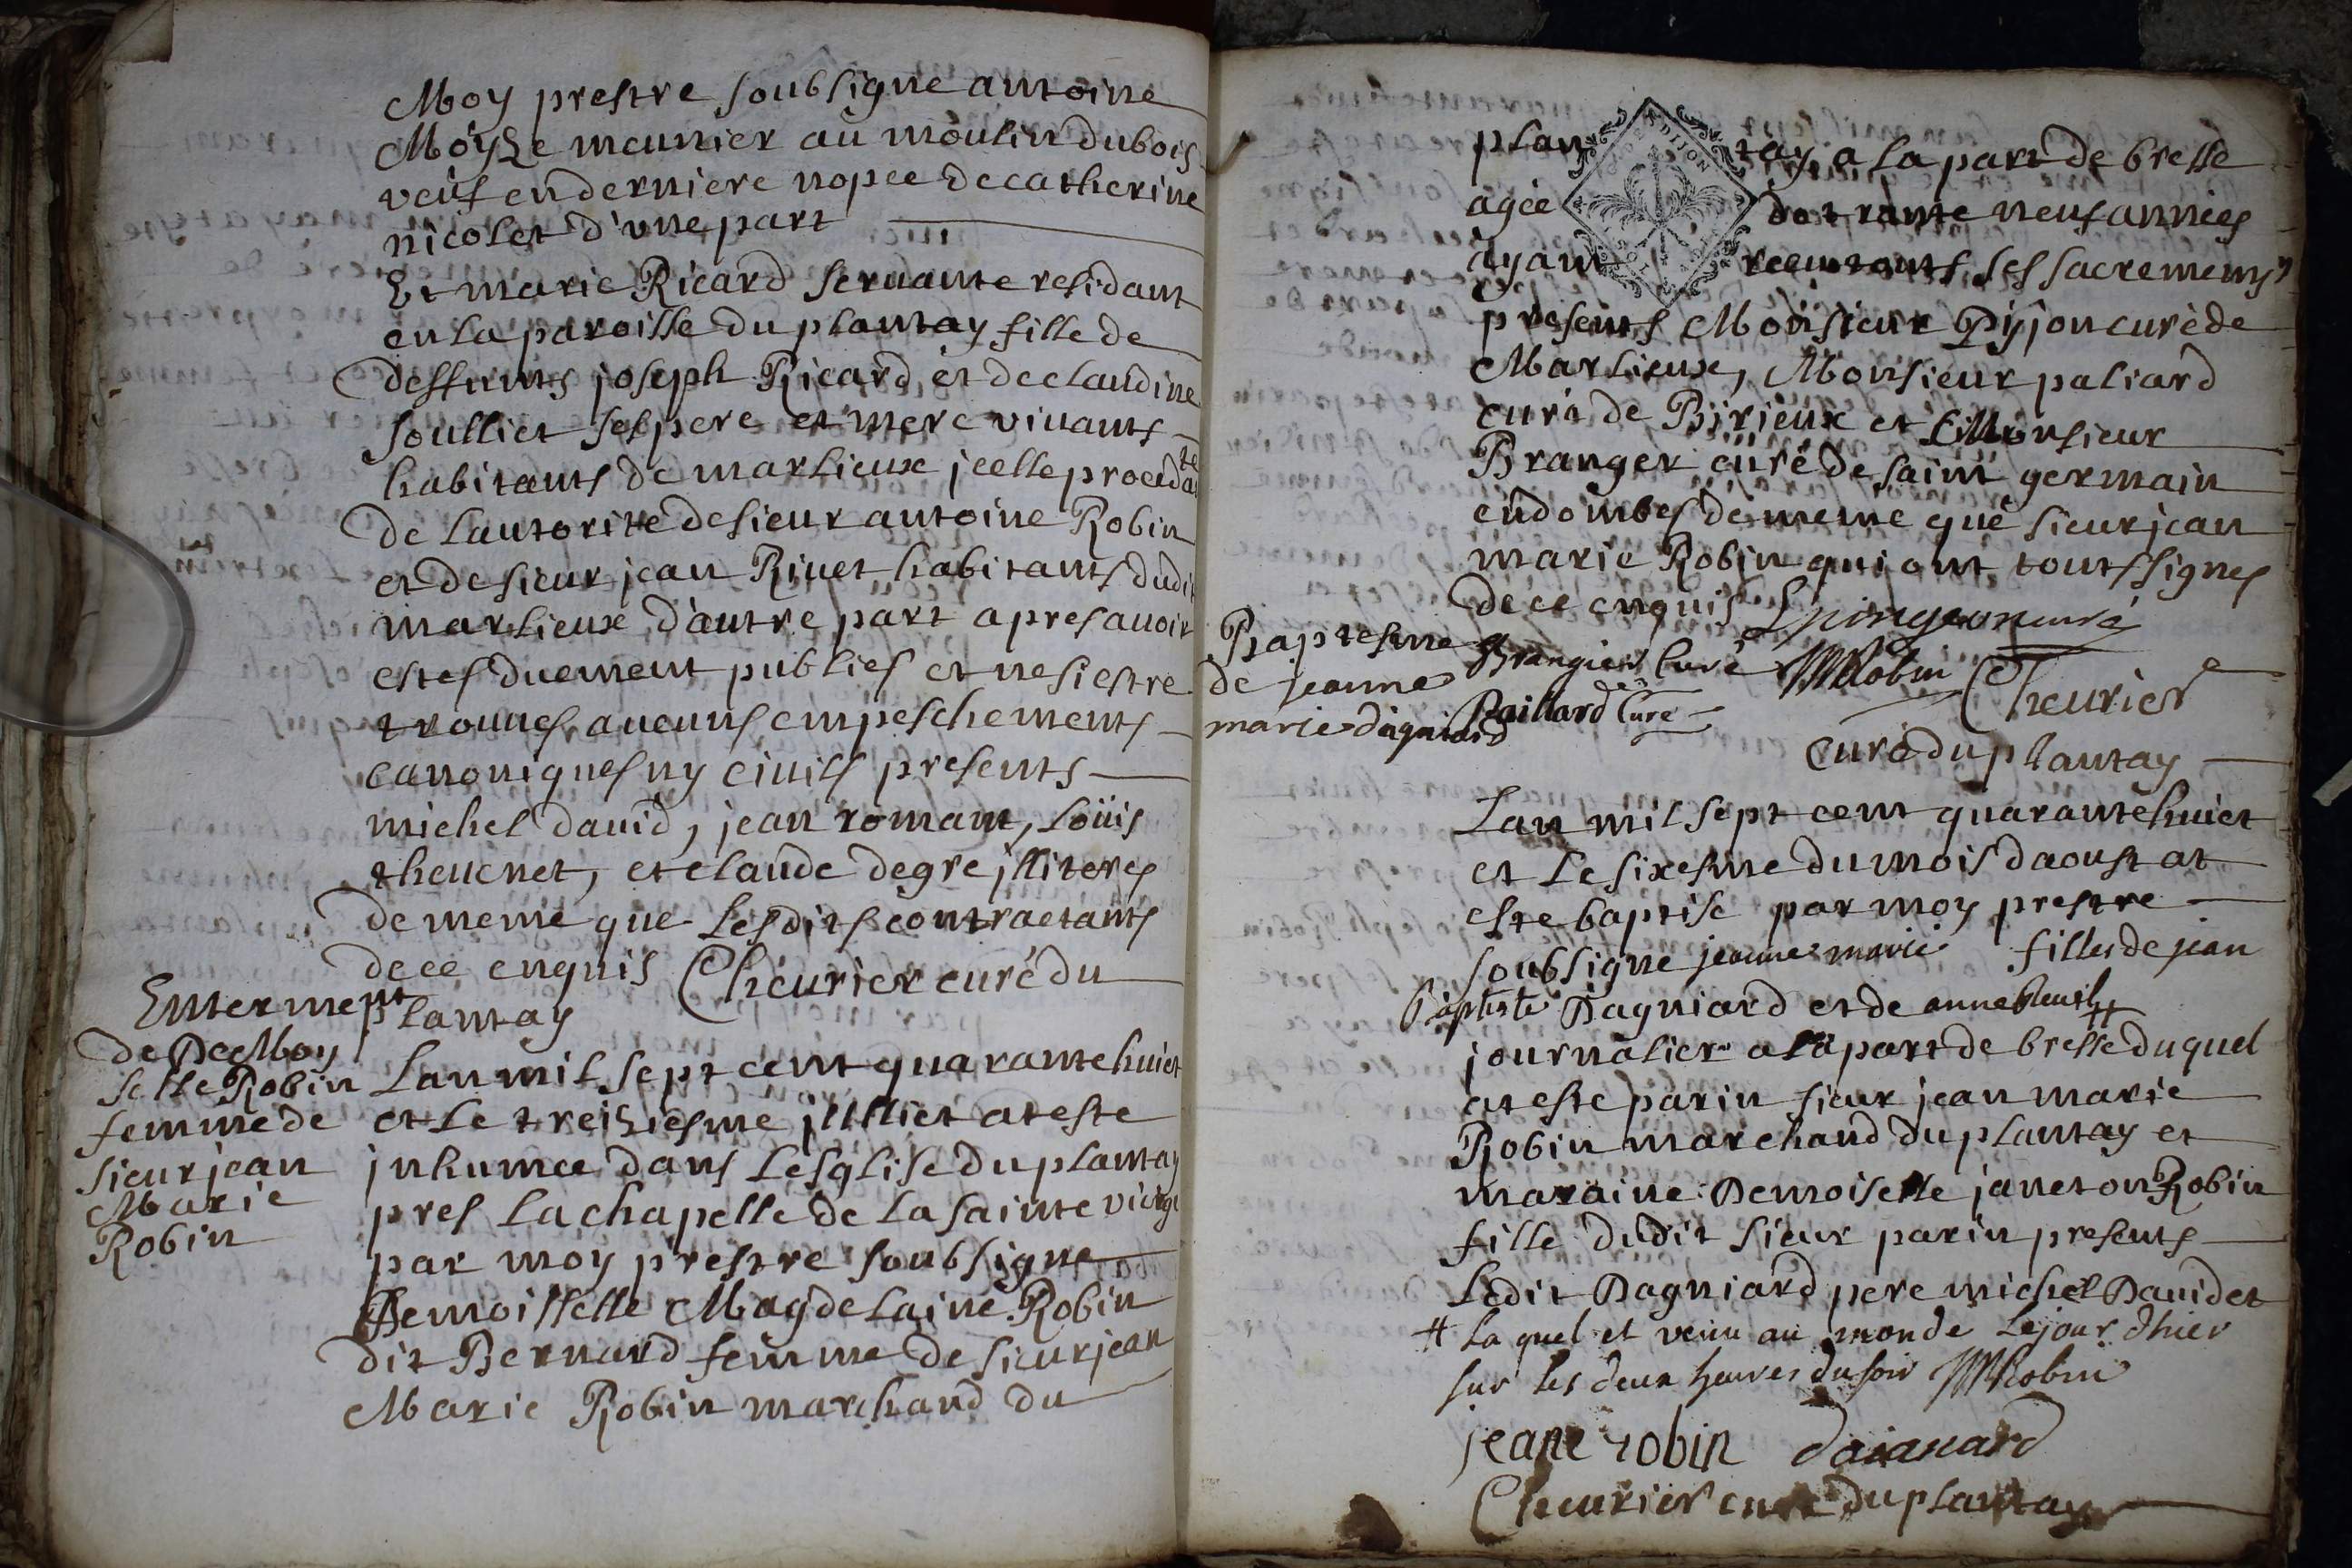 Moy prestre soubsigne antoine
Moyze meunier au moulin du bois
veuf en derniere nopce de catherine
nicolet d'une part
Et marie Ricard seruante residant
en la paroisse du plantay fille de
deffunts joseph Ricard et de claudine
soulliet ses pere et mere viuants
habitants de marlieux jcelle procedante
de lautorite de sieur antoine Robin
et de sieur jean Riuet habitants dudit
marlieux d'autre part apres auoir
estes duement publies et ne si estre
trouues aucuns empeschements
canoniques ny ciuils presents
michel dauid, jean romant, Loüis
theuenet, et claude degre jlliteres
de meme que Lesdits contractants
de ce enquis Cheurier curé du
plantay
Enterment
de DeeMoy
selle Robin
femme de
sieur jean
Marie
Robin
Lan mil sept cent quarante huict
et Le treiziesme juilliet at este
jnhumee dans Lesglise du plantay
pres La chapelle de La sainte vierge
par moy prestre soubsigne
Demoisselle Magdelaine Robin
dit Bernard femme de sieur jean
Marie Robin marchand du
plantay a la part de bresse
agée de trante neuf années
ayant receu touts ses sacrements
presents Monsieur Pijon curé de
Marlieux, Monsieur paliard
curé de Birieux et Monsieur
Branger curé de saint germain
en dombes de meme que sieur jean
marie Robin qui ont touts signes
de ce enquis Lpingeon curé
Brangier Curé JMRobin Cheurier
Paillard Curé
curé du plantay
Baptesme
de jeanne
marie dagniard
Lan mil sept cent quarante huict
et Le sixesme du mois daoust at
este baptise par moy prestre
soubsigne jeanne marie filles de jean
Baptiste Dagniard et de anne #
journalier a la part de bresse duquel
at este parin sieur jean marie
Robin marchand du plantay et
maraine Demoiselle janeton Robin
fille dudit sieur parin presents
Ledit Dagniard pere michel Dauid et
# la quel et venu au monde Lejour dhier
sur les deux heures du soir JMRobin
jeane robin daianard
Cheurier curé du plantay